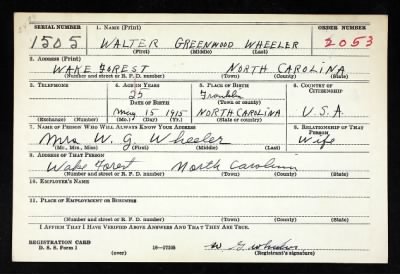 SERIAL NUMBER 1. NAME (Print) ORDER NUMBER
1505 WALTER GREENWOOD WHEELER 2053
(First) (Middle) (Last)
2. ADDRESS (Print)
WAKE FOREST NORTH CAROLINA
(Number and street or R. F. D. number) (Town) (County) (State)
3. TELEPHONE 4. AGE IN YEARS 5. PLACE OF BIRTH 6. COUNTRY OF CITIZENSHIP
25 Franklin
DATE OF BIRTH (Town or county)
May 15 1915 NORTH CAROLINA U.S.A.
(Exchange) (Number) (Mo.) (Day) (Yr.) (State or country)
7. NAME OF PERSON WHO WILL ALWAYS KNOW YOUR ADDRESS 8. RELATIONSHIP OF THAT PERSON
Mrs W. G. Wheeler Wife
(Mr., Mrs., Miss) (First) (Middle) (Last)
9. ADDRESS OF THAT PERSON
Wake Forest North Carolina
(Number and street or R. F. D. number) (Town) (County) (State)
10. EMPLOYER'S NAME
11. PLACE OF EMPLOYMENT OR BUSINESS
(Number and street or R. F. D. number) (Town) (County) (State)
I AFFIRM THAT I HAVE VERIFIED ABOVE ANSWERS AND THAT THEY ARE TRUE.
REGISTRATION CARD
D. S. S. Form 1 (over) 16-17105 W G Wheeler
(Registrant's signature)